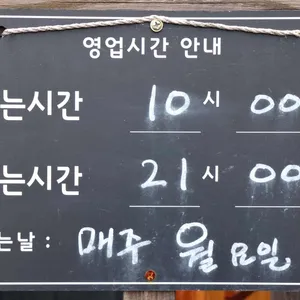 영업시간 안내
는시간 10시 00
는시간 21시 00
는날 : 매주 월요일